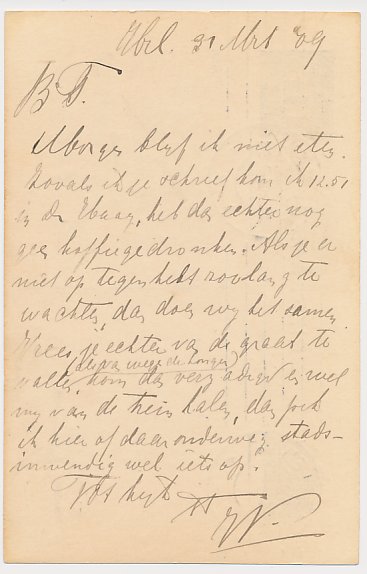 31 Mrt 09
B T.
Morgen blijf ik niet eten.
Zooals ik je schreef kom ik 12.51
in den Haag, heb dan echter nog
geen koffiegedronken. Als je er
niet op tegen hebt zoolang te
wachten, dan doen wy het samen.
Vrees je echter van de graat te
vallen (als van wege de honger)
kom dan en wel
my van de trein halen, dan pik
ik hier of daar onderweg stads-
inwendig wel iets op.